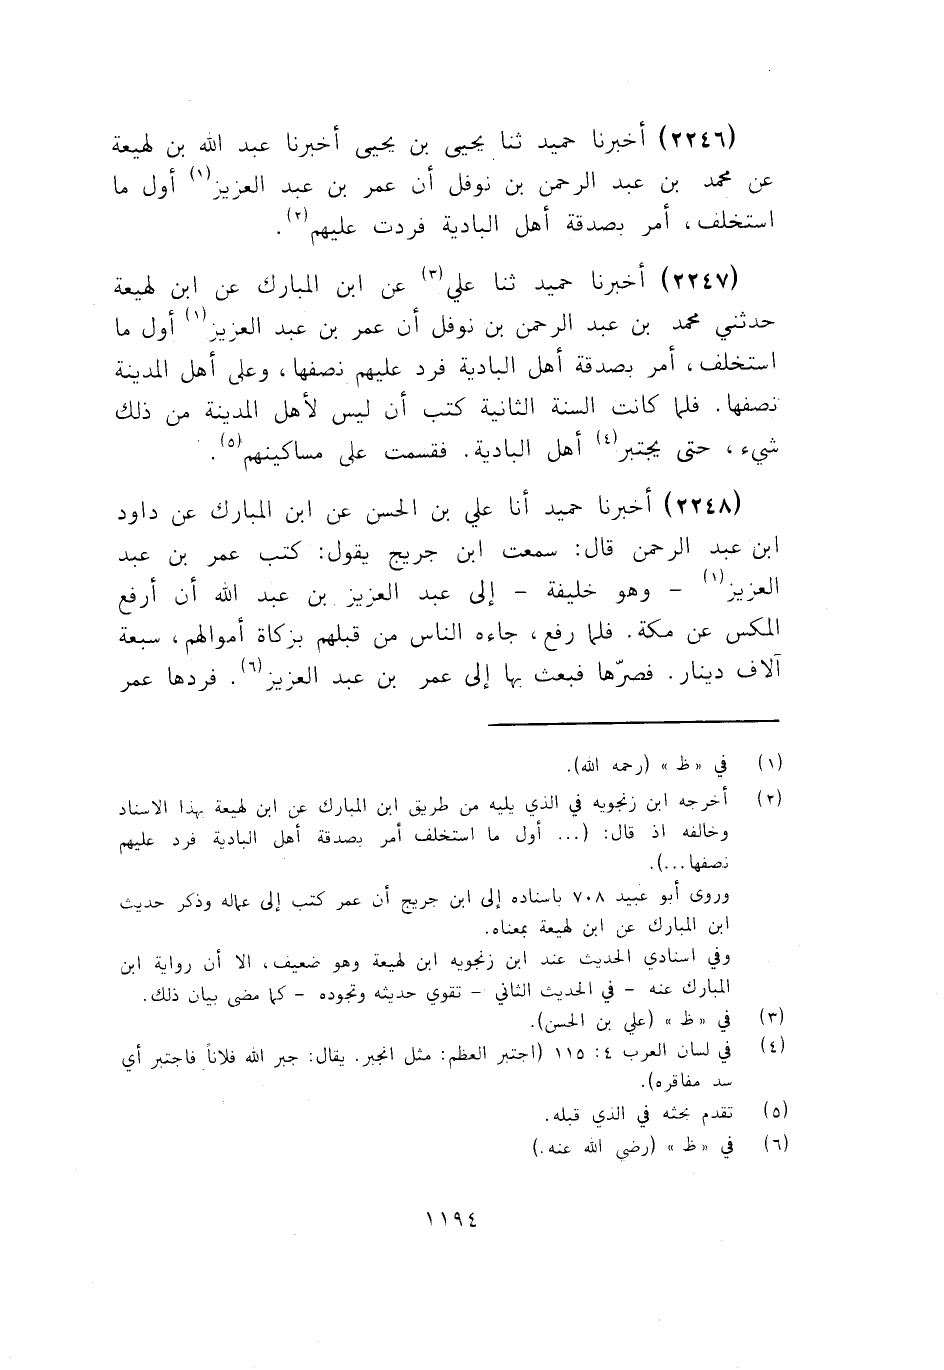 (٢٢٤٦) أخبرنا حميد ثنا يحيى بن يحيى أخبرنا عبد الله بن لهيعة
عن محمد بن عبد الرحمن بن نوفل أن عمر بن عبد العزيز(١) أول ما
استخلف، أمر بصدقة أهل البادية فردت عليهم(٢).
(٢٢٤٧) أخبرنا حميد ثنا علي(٣) عن ابن المبارك عن ابن لهيعة
حدثني محمد بن عبد الرحمن بن نوفل أن عمر بن عبد العزيز(١) أول ما
استخلف، أمر بصدقة أهل البادية فرد عليهم نصفها، وعلى أهل المدينة
نصفها. فلما كانت السنة الثانية كتب أن ليس لأهل المدينة من ذلك
شيء، حتى يجتبر(٤) أهل البادية. فقسمت على مساكينهم(٥).
(٢٢٤٨) أخبرنا حميد أنا علي بن الحسن عن ابن المبارك عن داود
ابن عبد الرحمن قال: سمعت ابن جريج يقول: كتب عمر بن عبد
العزيز(١) – وهو خليفة – إلى عبد العزيز بن عبد الله أن أرفع
المكس عن مكة. فلما رفع، جاءه الناس من قبلهم بزكاة أموالهم، سبعة
آلاف دينار. فصرّها فبعث بها إلى عمر بن عبد العزيز(٦). فردها عمر
(١) في «ظ» (رحمه الله).
(٢) أخرجه ابن زنجويه في الذي يليه من طريق ابن المبارك عن ابن لهيعة بهذا الاسناد
وخالفه اذ قال: (... أول ما استخلف أمر بصدقة أهل البادية فرد عليهم
نصفها...).
وروى أبو عبيد ٧٠٨ باسناده إلى ابن جريج أن عمر كتب إلى عماله وذكر حديث
ابن المبارك عن ابن لهيعة بمعناه.
وفي اسنادي الحديث عند ابن زنجويه ابن لهيعة وهو ضعيف، الا أن رواية ابن
المبارك عنه – في الحديث الثاني – تقوي حديثه وتجوده – كما مضى بيان ذلك.
(٣) في «ظ» (علي بن الحسن).
(٤) في لسان العرب ٤: ١١٥ (اجتبر العظم: مثل انجبر. يقال: جبر الله فلاناً فاجتبر أي
سد مفاقره).
(٥) تقدم بحثه في الذي قبله.
(٦) في «ظ» (رضي الله عنه.)
١١٩٤